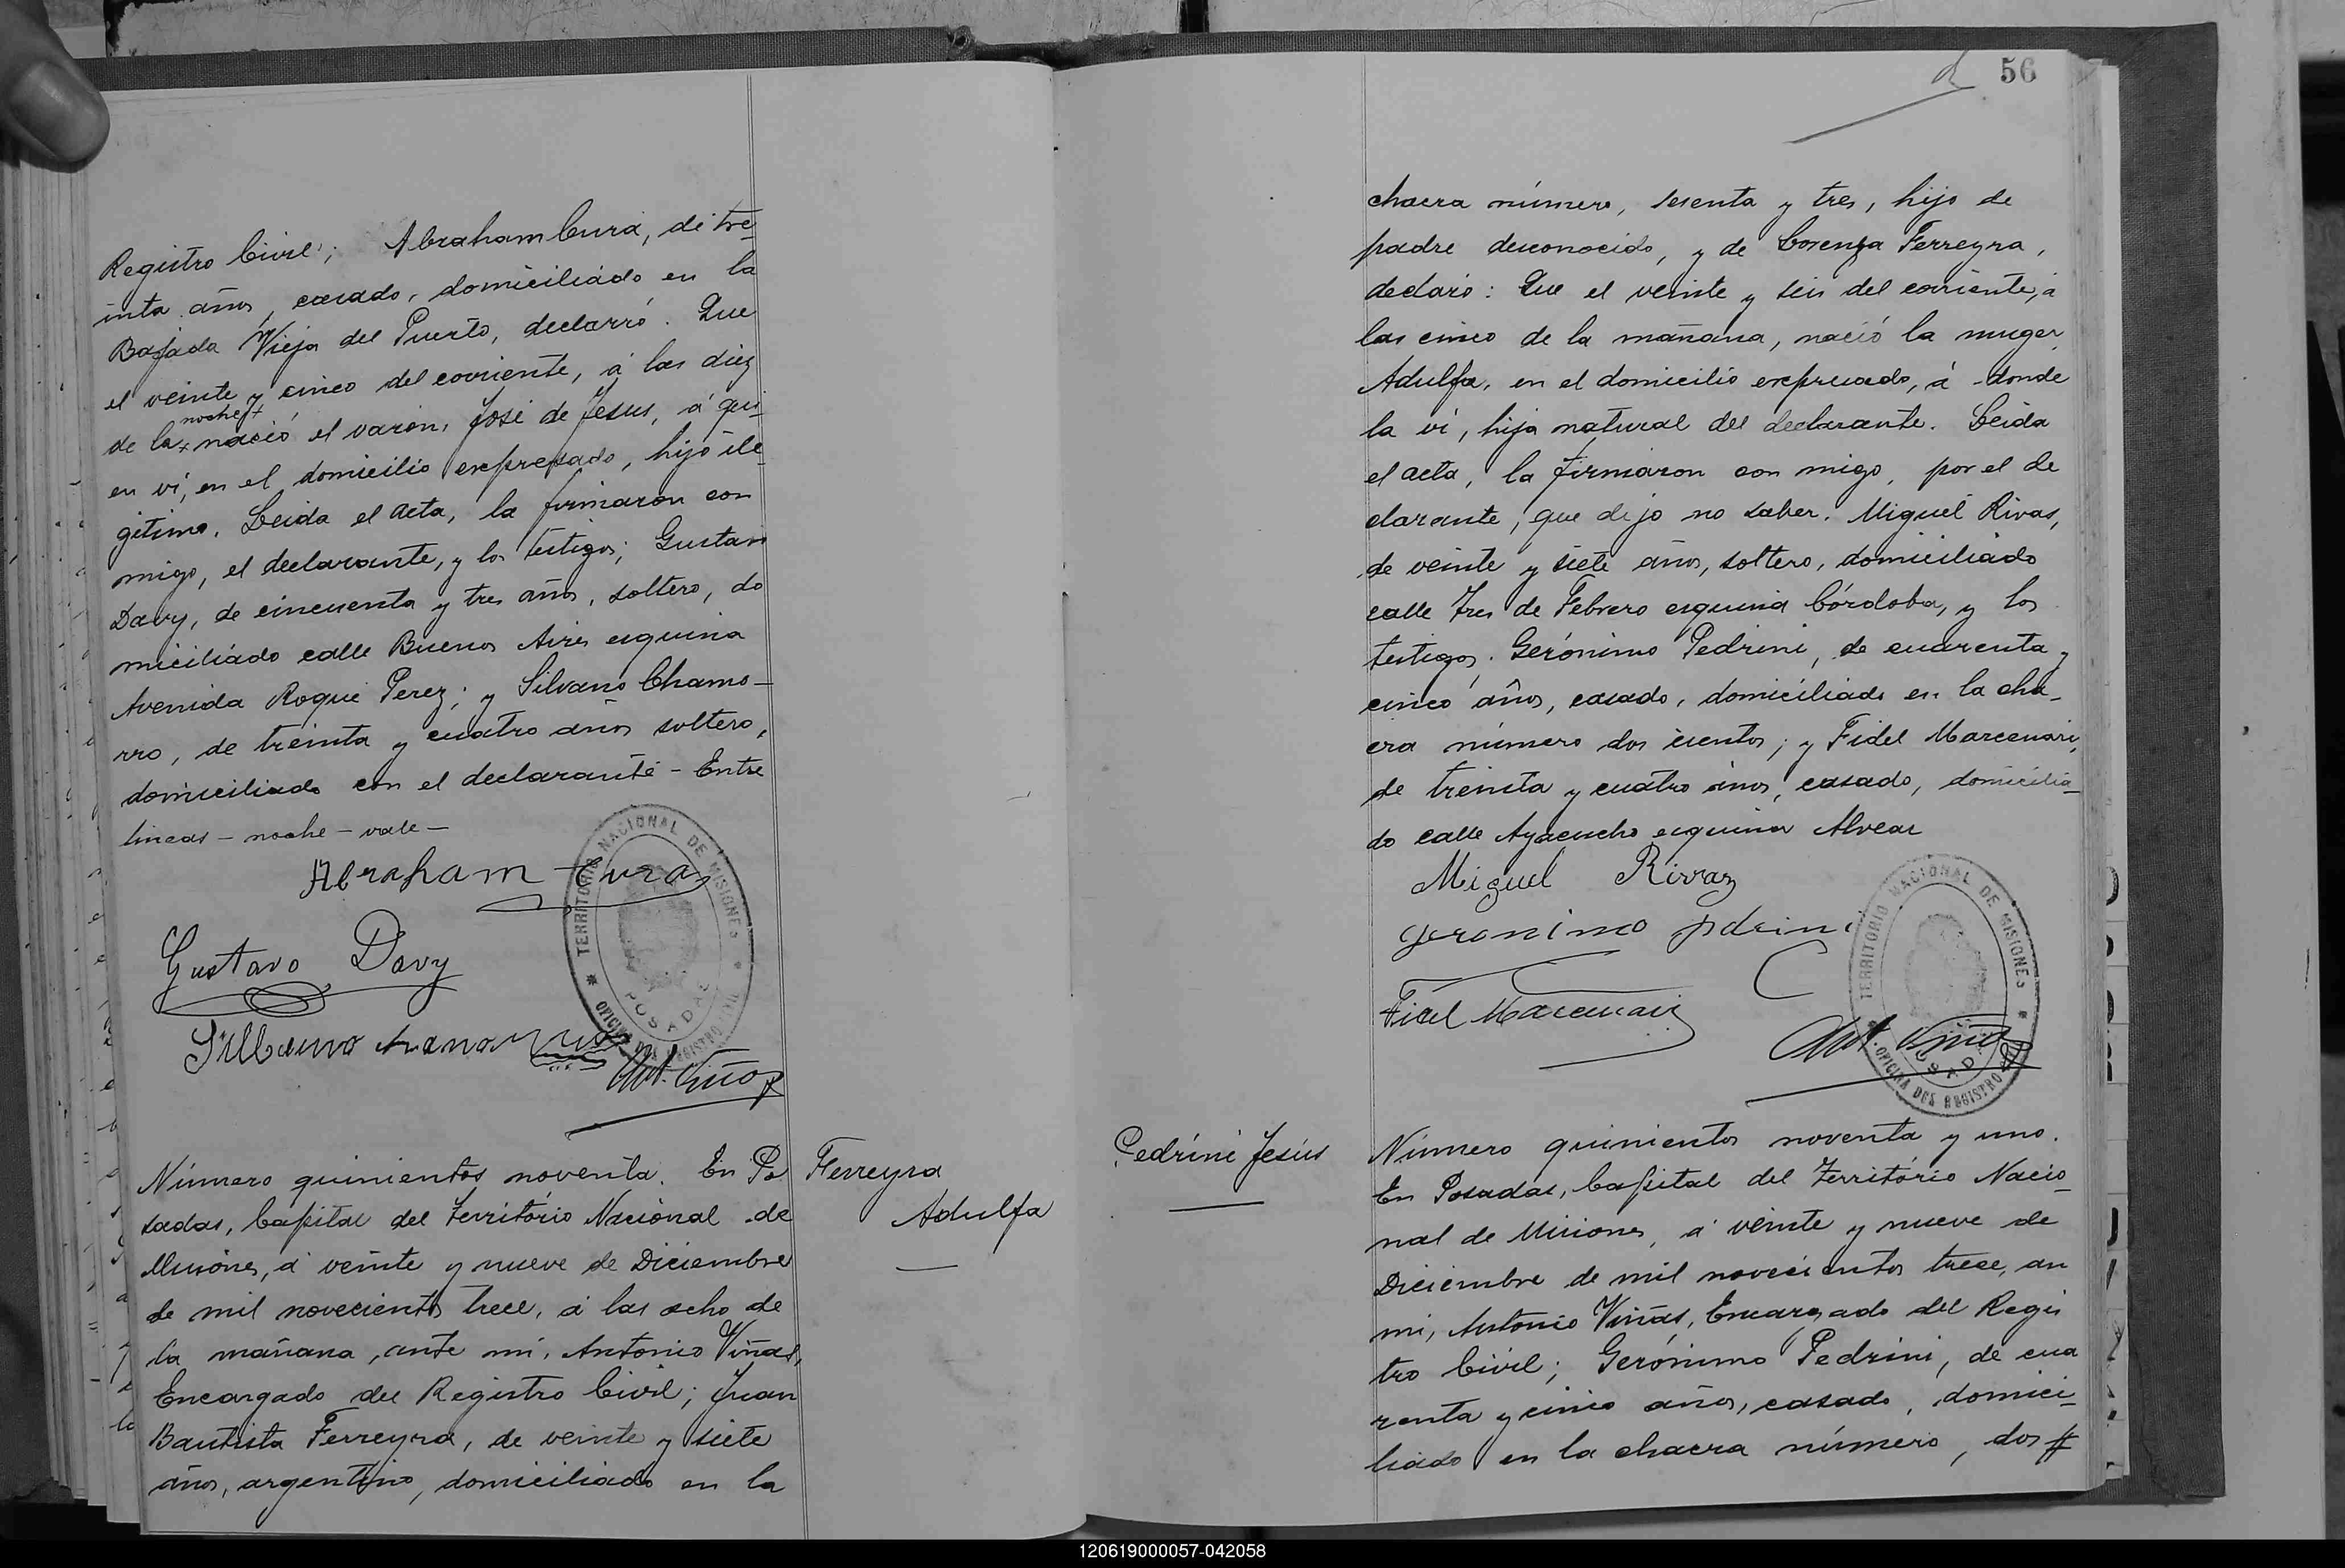 Registro Civil; Abraham Cura, de tre-
inta años, casado, domiciliado en la
Bajada Vieja del Puerto, declarró. Que
el veinte y cinco del corriente, á las diez
noche +
de la x nació el varon, José de Jesus, á qui-
en ví, en el domicilio expresado, hijo ile-
gitimo. Leida el acta, la firmaron con
migo, el declarante, y los testigos; Gustavo
Davy, de cincuenta y tres años, soltero, do
miciliado calle Buenos Aires esquina
Avenida Roque Perez; y Silvano Chamo-
rro, de treinta y cuatro años soltero,
domiciliado con el declarante - Entre
lineas - noche - vale -
Abraham Cura
Gustavo Davy
TERRITORIO NACIONAL DE MISIONES
POSADAS
OFICINA DEL REGISTRO
Ant. Viñas
Número quinientos noventa. En Po
sadas, Capital del Território Nacional de
Misiones, á veinte y nueve de Diciembre
de mil novecientos trece, á las ocho de
la mañana, ante mí, Antonio Viñas,
Encargado del Registro Civil; Juan
Bautista Ferreyra, de veinte y siete
años, argentino, domiciliado en la
Ferreyra
Adulfa
56
chacra número, sesenta y tres, hijo de
padre desconocido, y de Lorenza Ferreyra,
declaró: Que el veinte y seis del corriente, á
las cinco de la mañana, nació la muger
Adulfa, en el domicilio expresado, á donde
la ví, hija natural del declarante. Leida
el acta, la firmaron con migo, por el de
clarante, que dijo no saber. Miguel Rivas,
de veinte y siete años, soltero, domiciliado
calle Tres de Febrero esquina Córdoba, y los
testigos. Gerónimo Pedrini, de cuarenta y
cinco años, casado, domiciliado en la cha-
cra número dos cientos; y Fidel Marcenari,
de treinta y cuatro años, casado, domicilia-
do calle Ayacucho esquina Alvear
Miguel Rivaz
Geronimo pdrini
Fidel Marcenari
TERRITORIO NACIONAL DE MISIONES
POSADAS
OFICINA DEL REGISTRO
Ant. Viñas
Pedrini Jesús
Número quinientos noventa y uno.
En Posadas, Capital del Território Nacio-
nal de Misiones, á veinte y nueve de
Diciembre de mil novecientos trece, an
mi, Antonio Viñas, Encargado del Regis
tro Civil; Gerónimo Pedrini, de cua
renta y cinco años, casado, domici-
liado en la chacra número, dos #
120619000057-042058